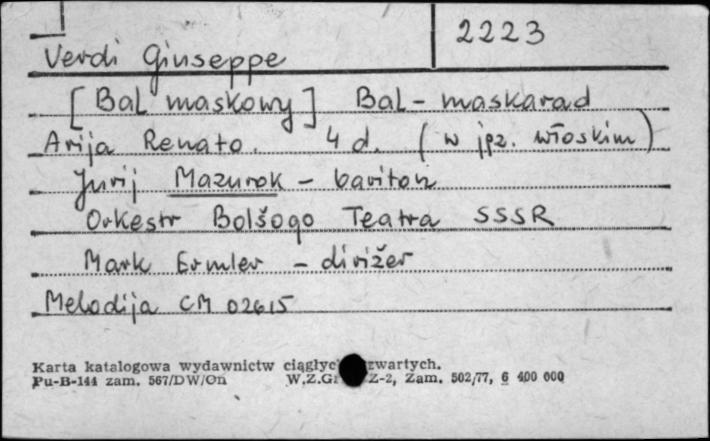 2223
Verdi Giuseppe
[Bal maskowy] Bal-maskarad
Arija Renato. 4 d. (w jęz. włoskim)
Jurij Mazurok - bariton
Orkestr Bolšogo Teatra SSSR
Mark Ermler - dirižer
Melodija CM 02615
Karta katalogowa wydawnictw zwartych.
Pu-B-144 zam. 567/DW/On Z-2, Zam. 502/77, 6 400 000